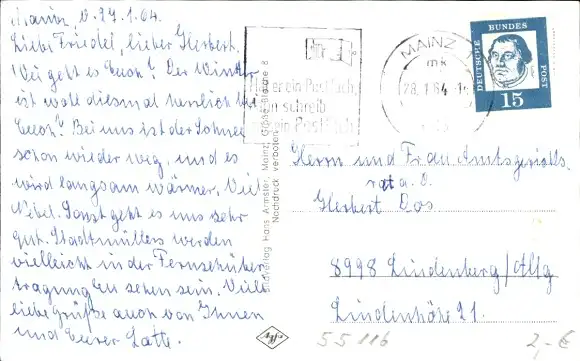 Mainz, d. 27.1.64.
Liebe Friedel, lieber Herbert.
Wie geht es Euch? Der Winter
ist wohl diesmal herrlich bei
Euch? Bei uns ist der Schnee
schon wieder weg, und es
wird langsam wärmer. Viel
Nebel. Sonst geht es uns sehr
gut. Stadtmüllers werden
vielleicht in der Fernsehüber-
tragung zu sehen sein. Viele
liebe Grüße auch von Ihnen
und Eurer Lotte.
Bildverlag Hans Armster, Mainz, Große Bleiche 8
Nachdruck verboten
ein Postfach
schreib
ein Postfach
MAINZ
mk
28.1.64
DEUTSCHE BUNDESPOST
15
Herrn und Frau Amtsgerichts-
rat a. D.
Herbert Bos
8998 Lindenberg/Allg
Lindenhöhe 21.
55116
2,-€